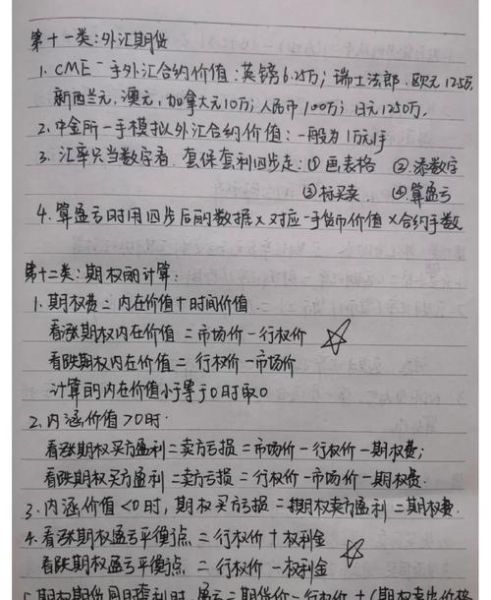 第十一类:外汇期货
1. CME一手外汇合约价值:英镑6.25万;瑞士法郎.欧元12.5万,
新西兰元,澳元,加拿大元10万;人民币100万;日元1250万.
2.中金所一手模拟外汇合约价值:一般为1万/手
3. 汇率只当数字看.套保套利四步走:①画表格 ②添数字
③标买卖 ④算盈亏
4.算盈亏时用四步后的数据×对应一手货币价值×合约手数
第十二类:期权的计算:
1.期权费=内在价值+时间价值
看涨期权内在价值=市场价-行权价
看跌期权内在价值=行权价-市场价
计算的内在价值小于等于0时取0
2.内涵价值>0时.
看涨期权买方盈利=卖方亏损=市场价-行权价-期权费;
看跌期权买方盈利=卖方亏损=行权价-市场价-期权费.
3.内涵价值<0时,期权买方亏损=期权卖方盈利=期权费.
4.看涨期权盈亏平衡点=行权价+权利金
看跌期权盈亏平衡点=行权价-权利金
5.期权期货同时套利时,盈亏=期货价-行权价+(期权卖出价格